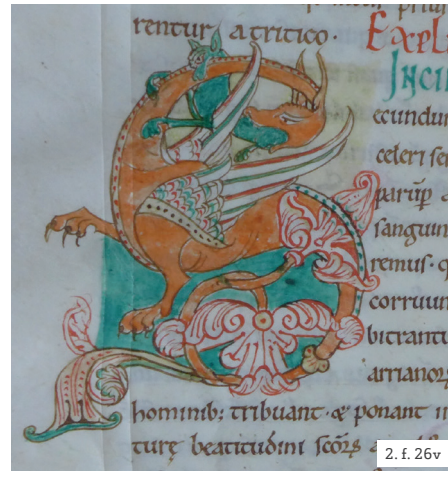 rentur a tritico.
Expl
Inci
ecundu
celeri se
sanguin
remus. q
corruun
bitrantu
arrianorꝝ
hominib; tribuant. & ponant
turę beatitudini scõꝝ
2. f. 26v